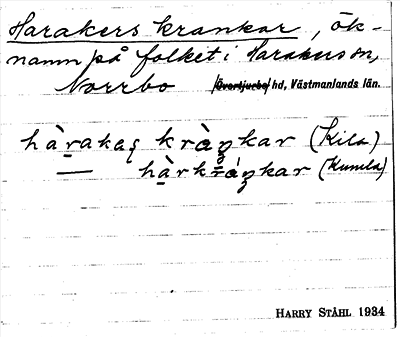 Harakers krankar, ök-
namn på folket i Harakers sn,
Norrbo hd, Västmanlands län.
hàrakaş kràŋkar (Kila)
— hàrkráŋkar (Kumla)
HARRY STÅHL 1934